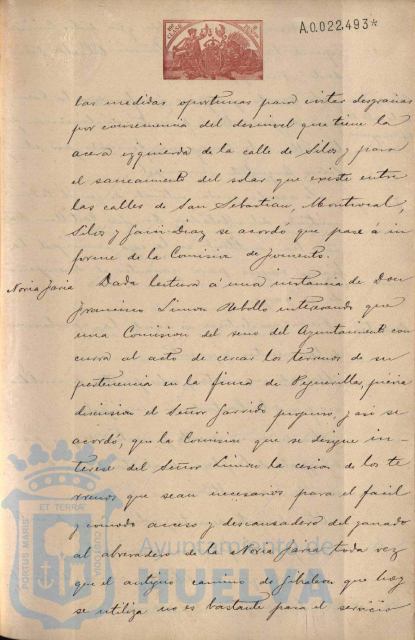 A.0.022.493*
las medidas oportunas para evitar desgracias
por consecuencia del desnivel que tiene la
acera izquierda de la calle de Silos y para
el saneamiento del solar que existe entre
las calles de San Sebastian, Montrocal,
Silos y Garci Diaz se acordó que pase á in
forme de la Comision de Fomento.
Noria Jaria Dada lectura á una instancia de Don
Francisco Limon Rebollo interesando que
una Comision del seno del Ayuntamiento con
curra al acto de cercar los terrenos de su
pertenencia en la finca de Peguerillas, previa
discusion el Señor Garrido propuso, y asi se
acordó, que la Comision que se designe in-
terese del Señor Limon la cesion de los te
rrenos que sean necesarios para el facil
y comodo acceso y descansadero del ganado
al abrevadero de la Noria Jaria toda vez
que el antiguo camino de Gibraleon que hoy
se utiliza no es bastante para el servicio
PORTUS MARIS ET TERRAE CUSTODIA
Ayuntamiento de
HUELVA